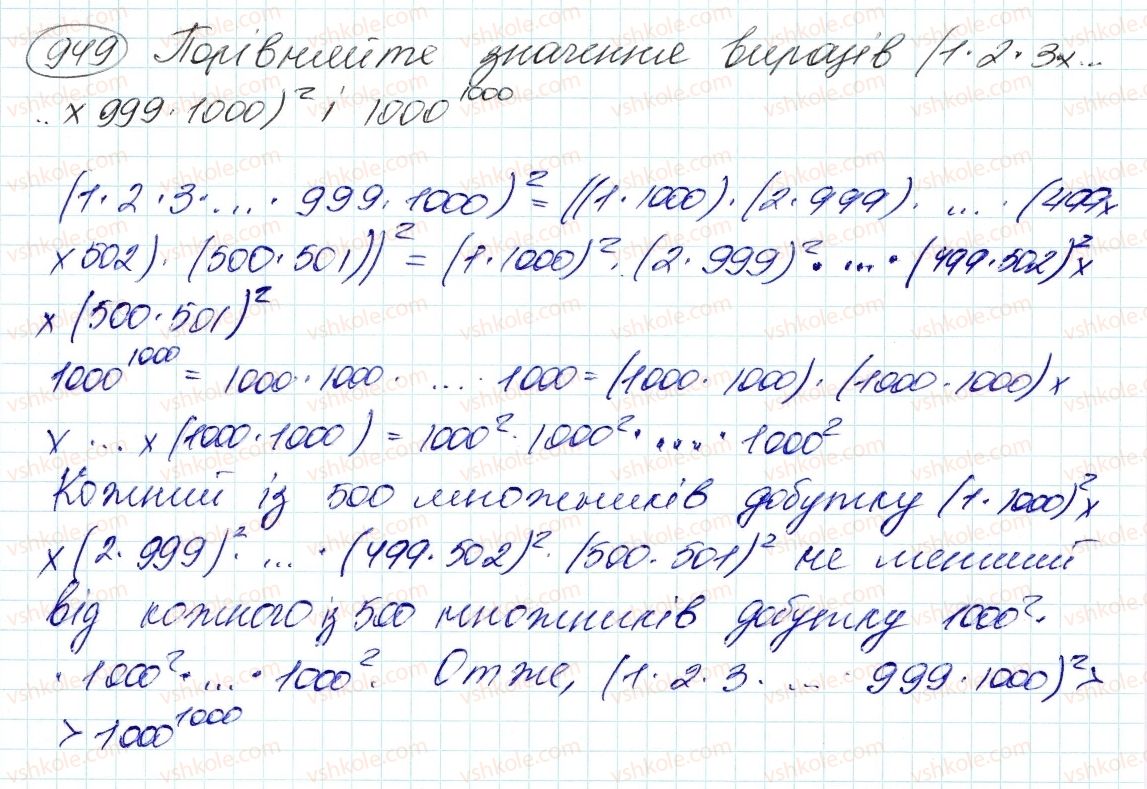 949 Порівняйте значення виразів (1·2·3х...
..х 999·1000)² і 1000¹⁰⁰⁰
(1·2·3·...·999·1000)² = ((1·1000)·(2·999)·...·(499х
х502)·(500·501))² = (1·1000)²·(2·999)²·...·(499·502)²х
х(500·501)²
1000¹⁰⁰⁰ = 1000·1000·...·1000 = (1000·1000)·(1000·1000)х
х...х(1000·1000) = 1000²·1000²·....·1000²
Кожний із 500 множників добутку (1·1000)²х
х(2·999)²·...·(499·502)²·(500·501)² не менший
від кожного із 500 множників добутку 1000²·
·1000²·...·1000². Отже, (1·2·3·...·999·1000)²>
>1000¹⁰⁰⁰